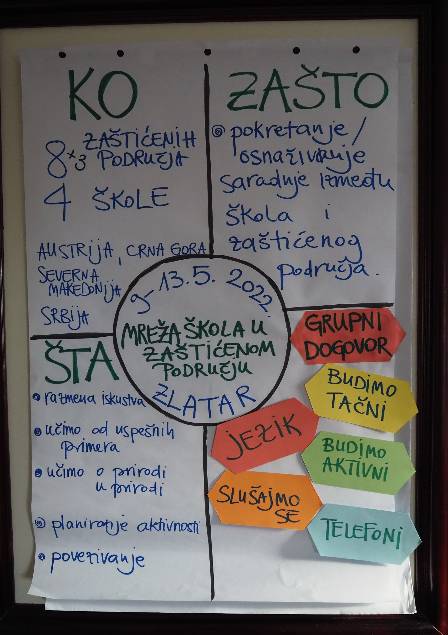 KO
8 x 3 ZAŠTIĆENIH
PODRUČJA
4 ŠKOLE
AUSTRIJA, CRNA GORA
SEVERNA
MAKEDONIJA
SRBIJA
ZAŠTO
pokretanje/
osnaživanje
saradnje između
škola i
zaštićenog
područja.
9-13.5. 2022.
MREŽA ŠKOLA U
ZAŠTIĆENOM
PODRUČJU
ZLATAR
ŠTA
razmena iskustva
učimo od uspešnih
primera
učimo o prirodi
u prirodi
planiranje aktivnosti
povezivanje
GRUPNI
DOGOVOR
BUDIMO
TAČNI
JEZIK
BUDIMO
AKTIVNI
SLUŠAJMO
SE
TELEFONI